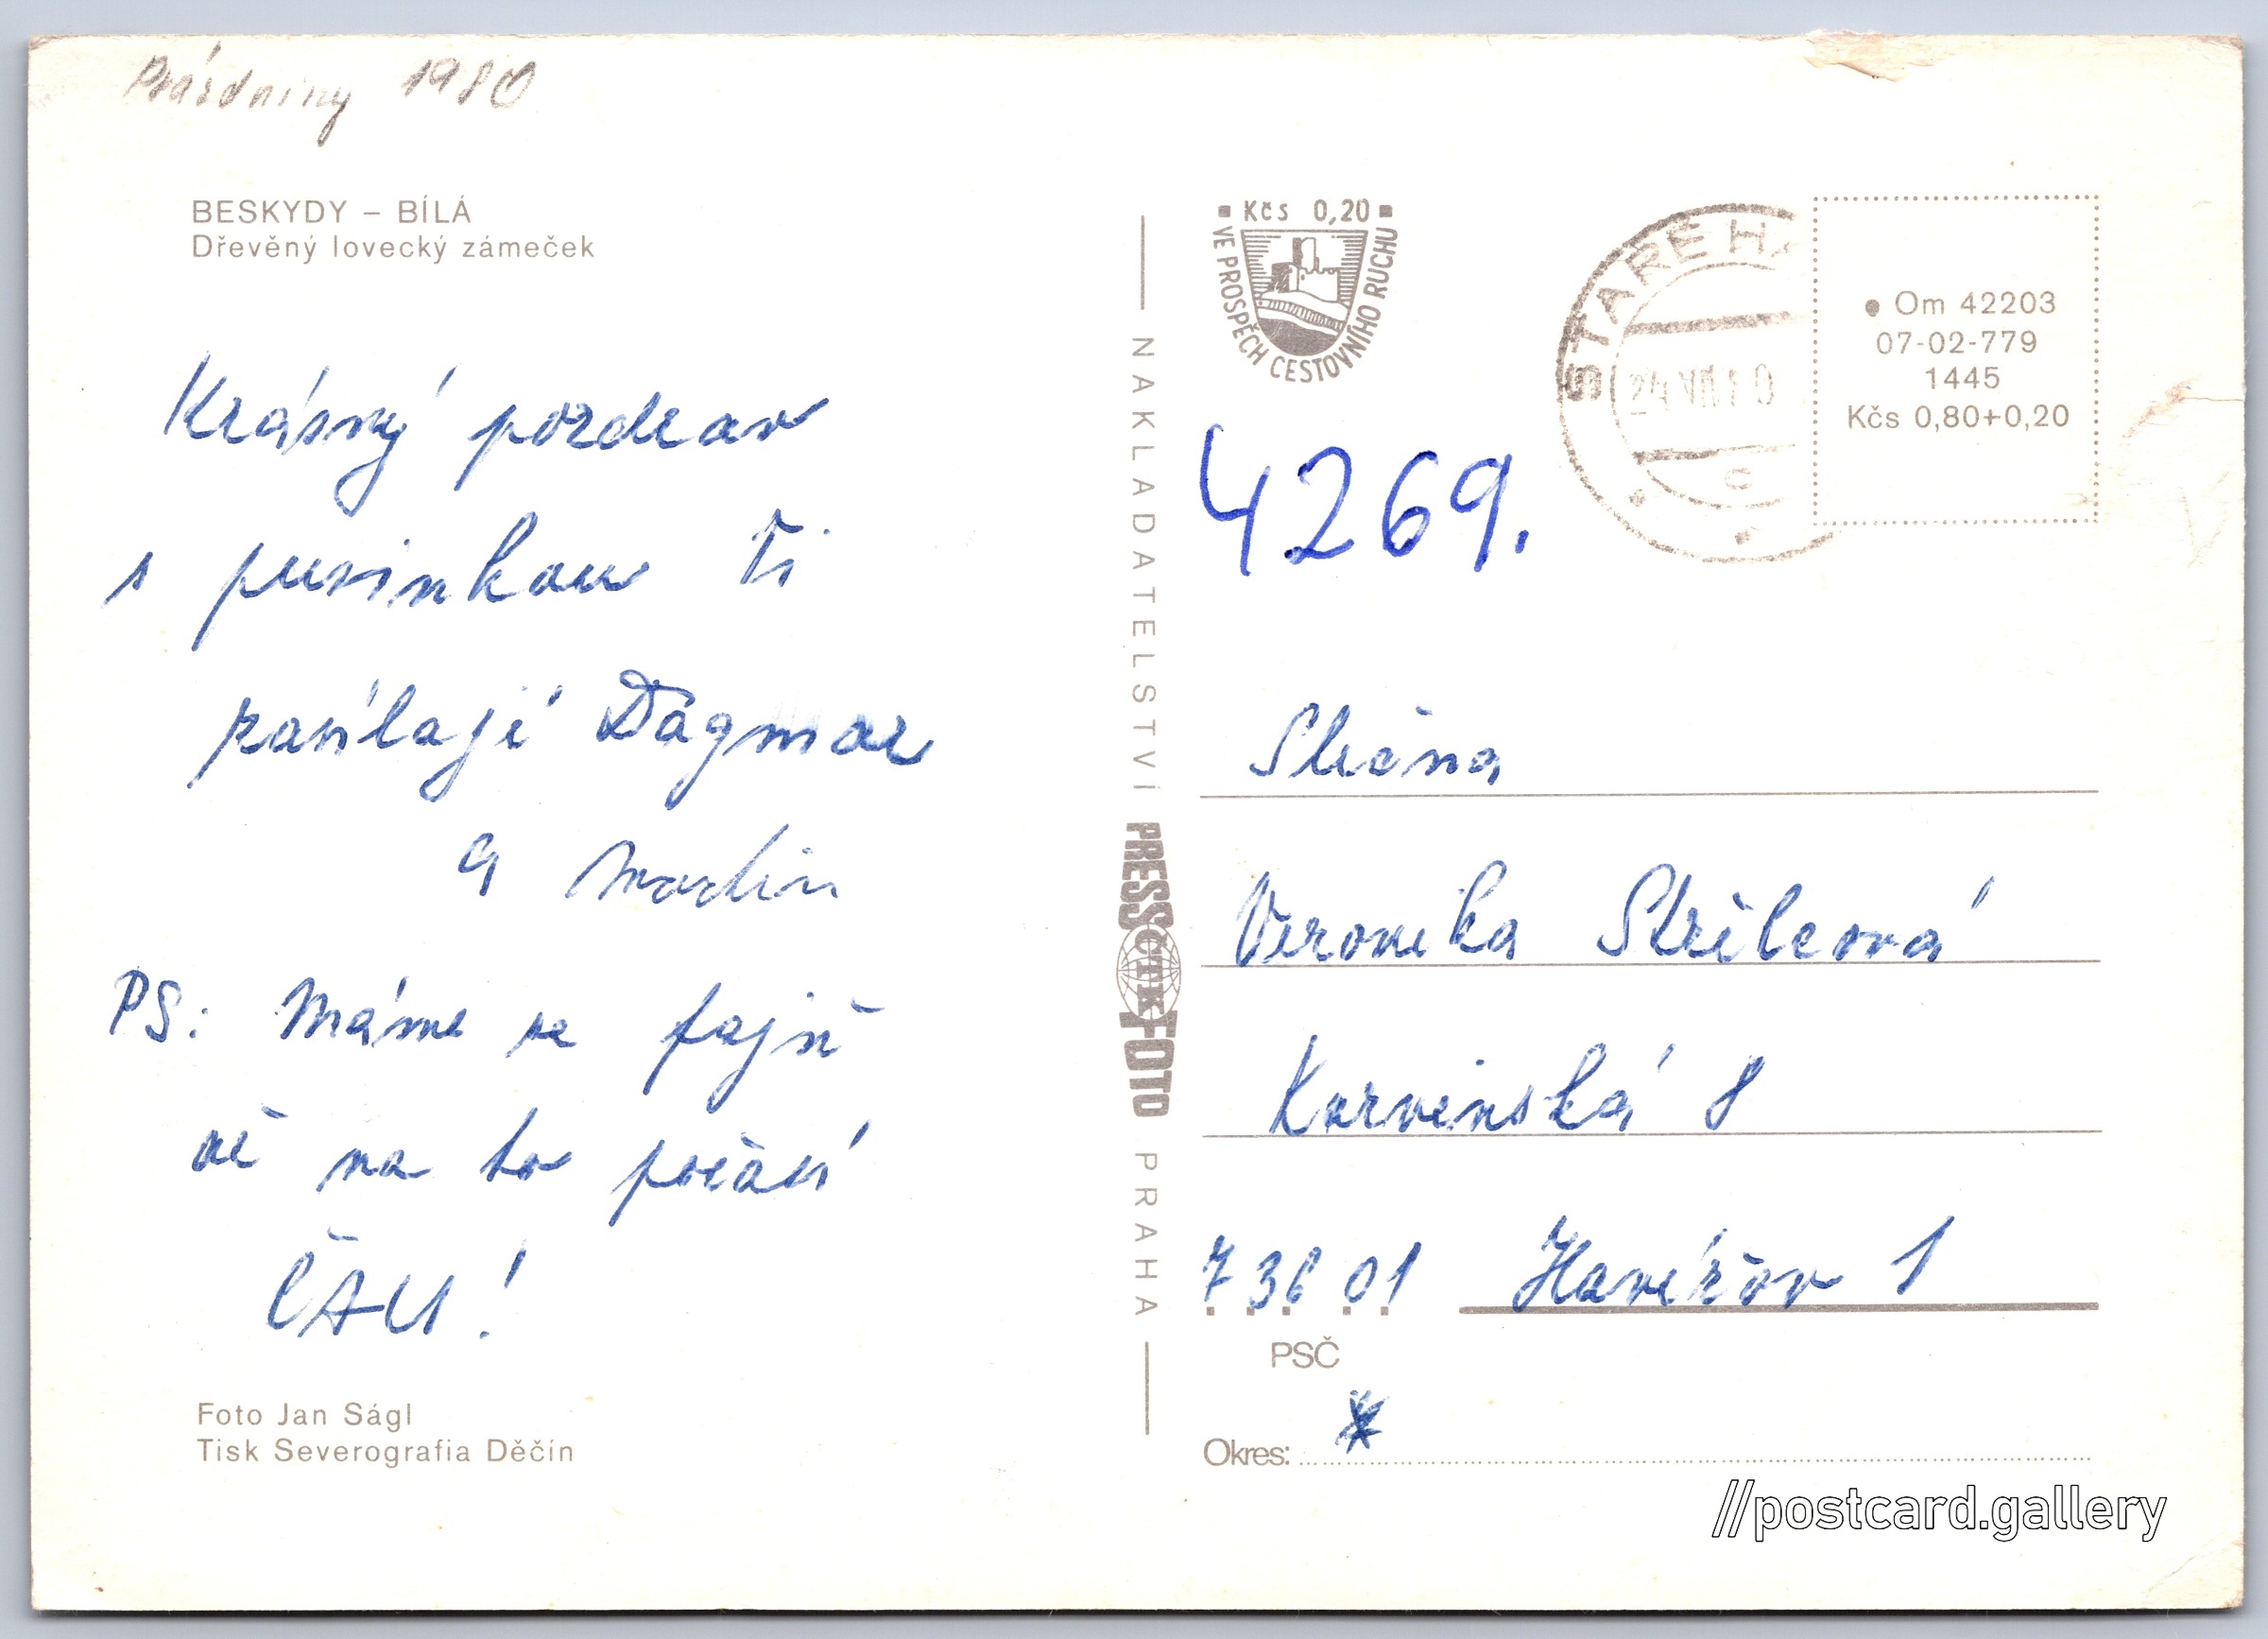 Prázdniny 1980
BESKYDY – BÍLÁ
Dřevěný lovecký zámeček
Krásný pozdrav
s pusinkou Ti
zasílají Dagmar
a Martin
PS: Máme se fajn
až na to počasí
ČAU!
Foto Jan Ságl
Tisk Severografia Děčín
NAKLADATELSTVÍ PRESSFOTO PRAHA
ČTK
Kčs 0,20
VE PROSPĚCH CESTOVNÍHO RUCHU
STARÉ H
C
Om 42203
07-02-779
1445
Kčs 0,80+0,20
4269.
Slečna
Veronika Střílcová
Karvinská 8
736 01 Havířov 1
PSČ
Okres:
//postcard.gallery